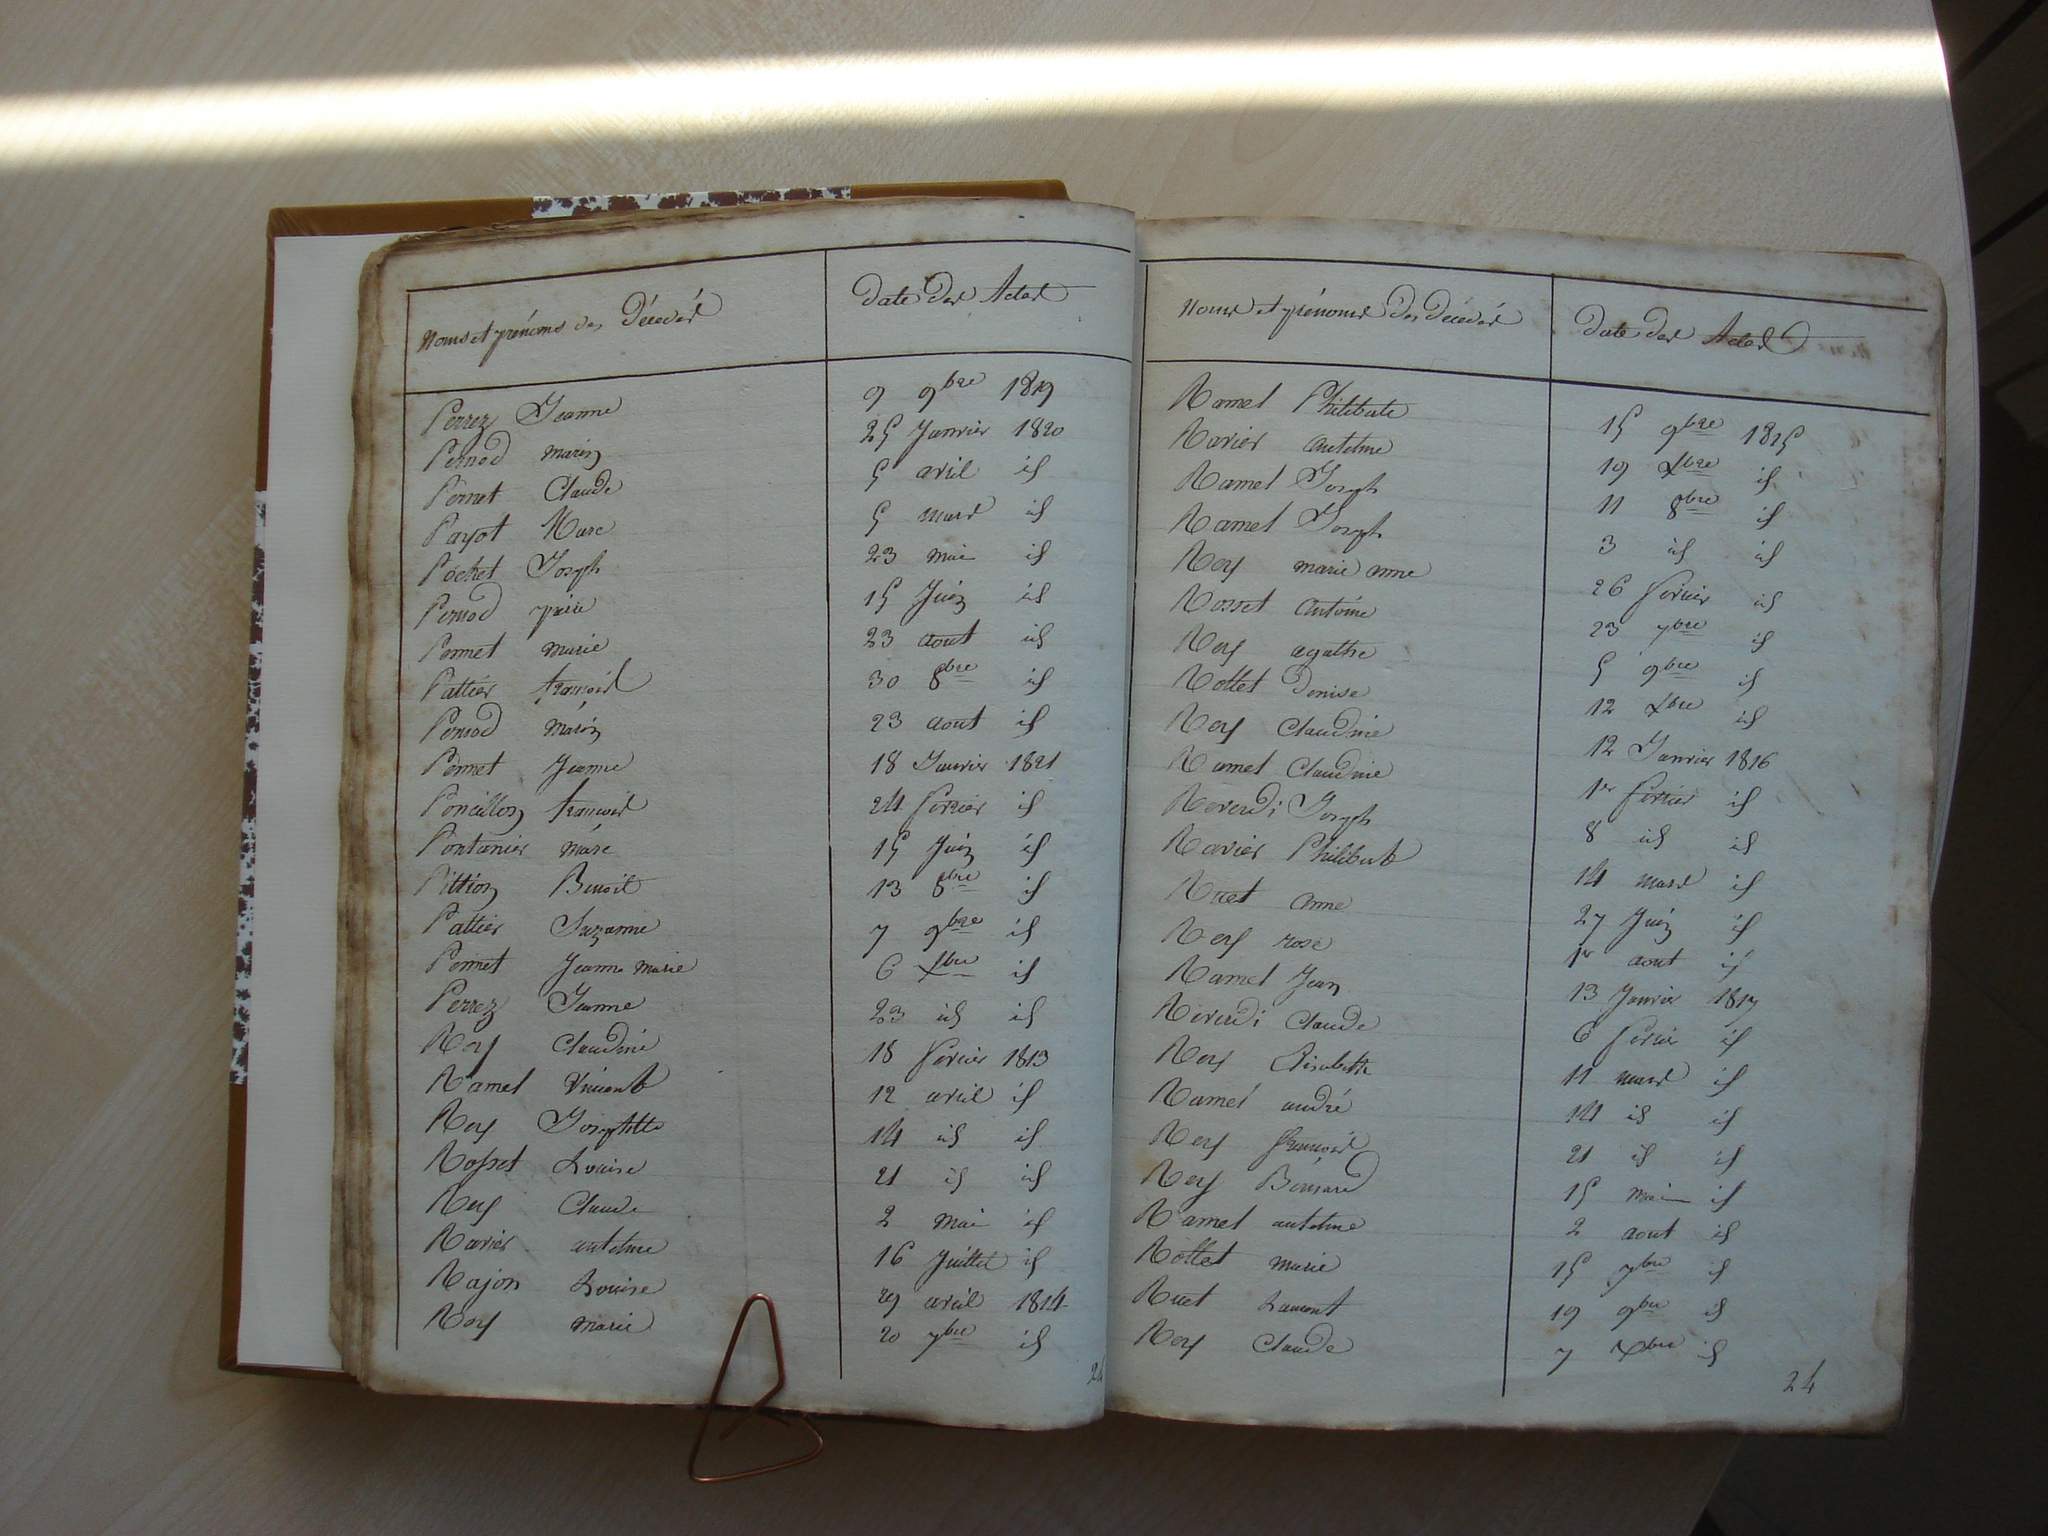 Noms et prénoms des Décédés Date des Actes
Perrez Jeanne 9 9bre 1819
Pernod marin 25 Janvier 1820
Pernet Claude 5 avril id
Payot Marc 5 mars id
Pochet Joseph 23 mai id
Pernod pierre 15 Juin id
Pernet marie 23 aout id
Pattier francois 30 8bre id
Pernod marin 23 aout id
Pernet Jeanne 18 Janvier 1821
Poncillon francois 24 fevrier id
Pontanier marc 15 Juin id
Pittion Benoit 13 8bre id
Pattier Suzanne 7 9bre id
Pernet Jeanne marie 6 Xbre id
Perrez Jeanne 23 id id
Rey Claudine 18 fevrier 1813
Ramel Vincent 12 avril id
Rey Josephte 14 id id
Rosset Louise 21 id id
Rey Claude 2 mai id
Ravier antelme 16 Juillet id
Rajon Louise 29 avril 1814
Rey marie 20 7bre id
Noms et prénoms des Décédés Date des Actes
Ramel Philiberte 15 9bre 1815
Ravier antelme 19 Xbre id
Ramel Joseph 11 8bre id
Ramel Joseph 3 id id
Rey marie anne 26 fevrier id
Rosset antoine 23 7bre id
Rey agathe 5 9bre id
Rollet Denise 12 Xbre id
Rey Claudine 12 Janvier 1816
Ramel Claudine 1er fevrier id
Reverdi Joseph 8 id id
Ravier Philibert 14 mars id
Ruet anne 27 Juin id
Rey rose 1er aout id
Ramel Jean 13 Janvier 1817
Reverdi Claude 6 fevrier id
Rey Elisabethe 11 mars id
Ramel andré 14 id id
Rey francois 21 id id
Rey Bernard 15 mai id
Ramel antelme 2 aout id
Rollet marie 15 7bre id
Ruet Laurent 19 9bre id
Rey Claude 7 Xbre id
24